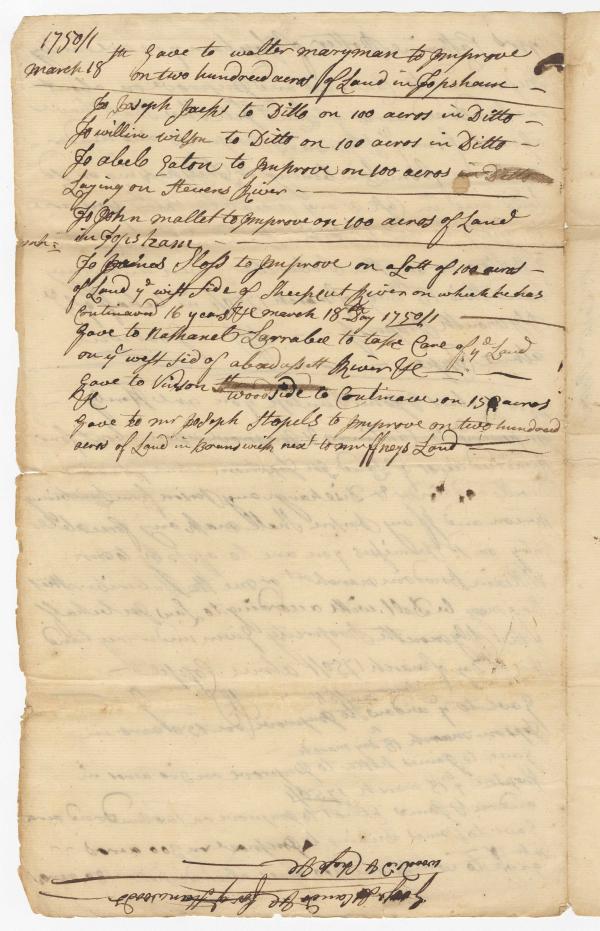 1750/1
march 18th Gave to walter maryman to Improve
on two hundred acros of Land in Topsham
To Joseph Jacks to Ditto on 100 acros in Ditto
To willim wilson to Ditto on 100 acros in Ditto
To abel Eaton to Improve on 100 acros in Ditto
Laying on Stevens River
To John mallet to Improve on 100 acros of Land
in Topsham
To James Sloss to Improve on a Lott of 100 acros
of Land ye west side of Sheepcut River on which he has
Continaved 16 years &c march 18th Day 1750/1
Gave to Nathanel Larrabee to take Care of ye Land
on ye west sid of abadasett River &c
Gave to Vinson woodside to Continave on 150 acros
&c
Gave to mr Joseph Stapels to Improve on two hundred
acros of Land in Brunswick next to mr ffreys Land